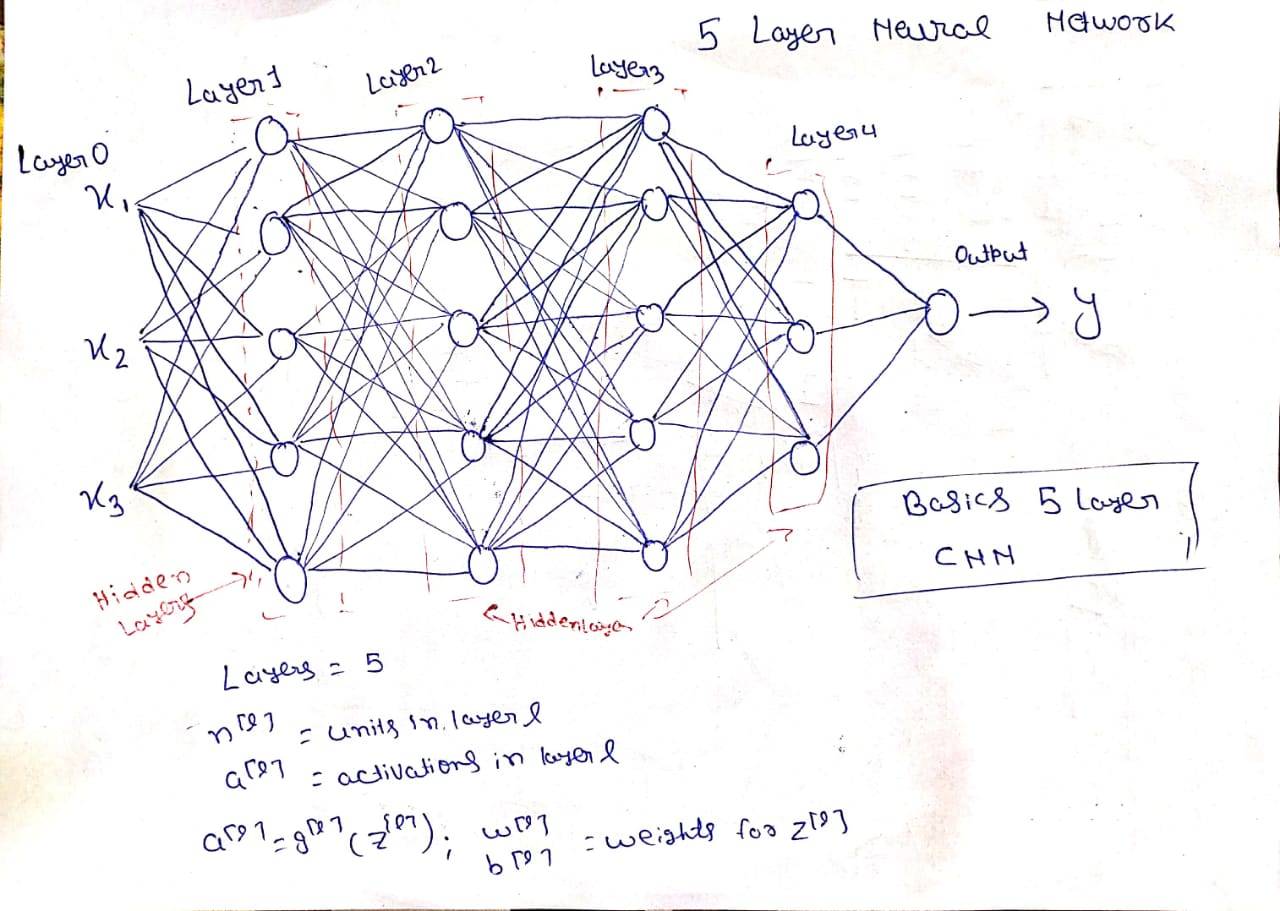 5 Layer Neural Network
Layer 0
Layer 1
Layer 2
Layer 3
Layer 4
x₁
x₂
x₃
Output
y
Basics 5 Layer
CNN
Hidden
Layers
Hidden layer
Layers = 5
n[l] = units in layer l
a[l] = activations in layer l
a[l] = g[l] (z[l]); w[l]
b[l] = weights for z[l]